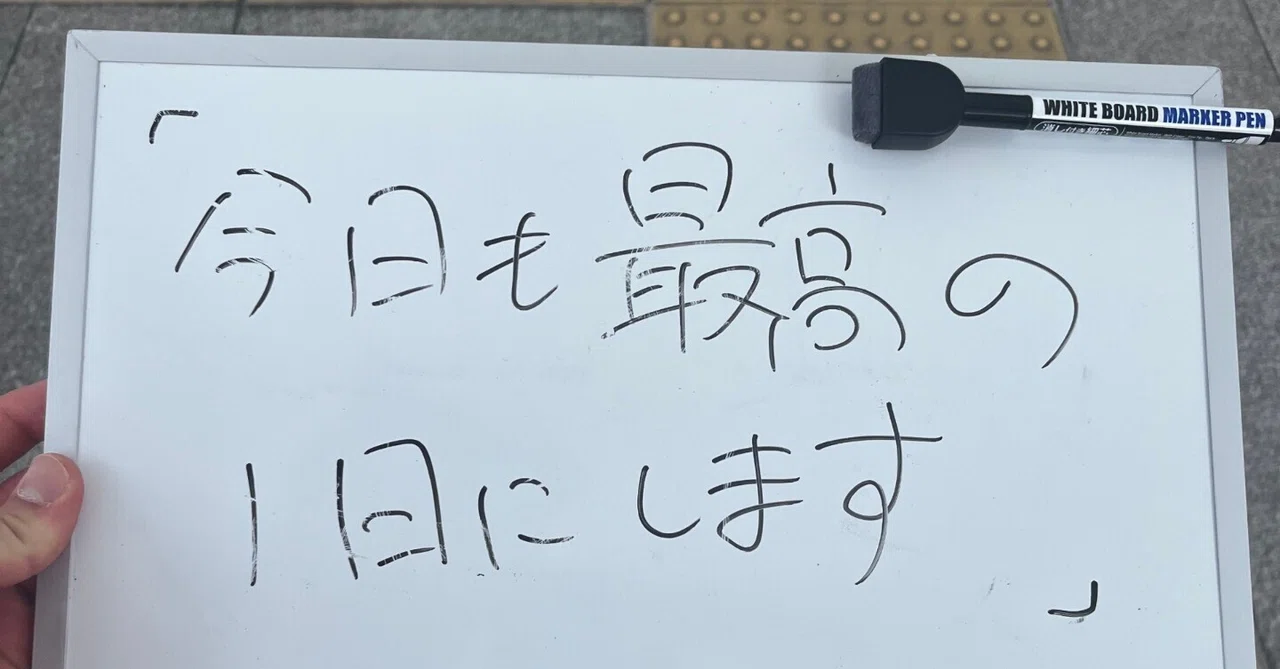 「今日も最高の
1日にします」
WHITE BOARD MARKER PEN